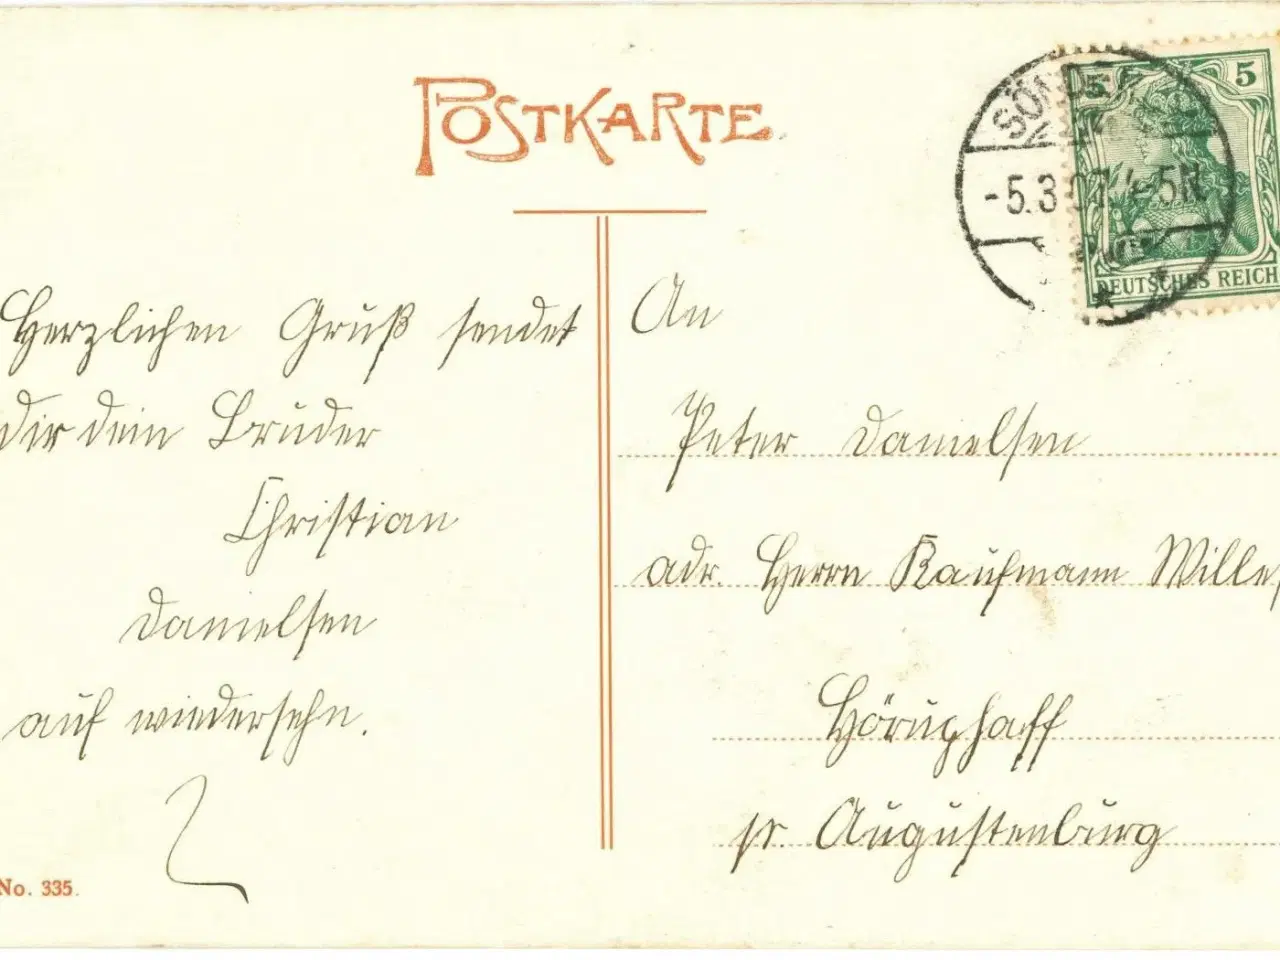 POSTKARTE
SÖNDE
-5.3.07.4-5N
5 5
DEUTSCHES REICH
Herzlichen Gruß sendet
dir dein Bruder
Christian
Danielsen
auf wiedersehn.
No. 335.
An
Peter Danielsen
adr. Herrn Kaufmann Wille
Höruphaff
pr. Augustenburg